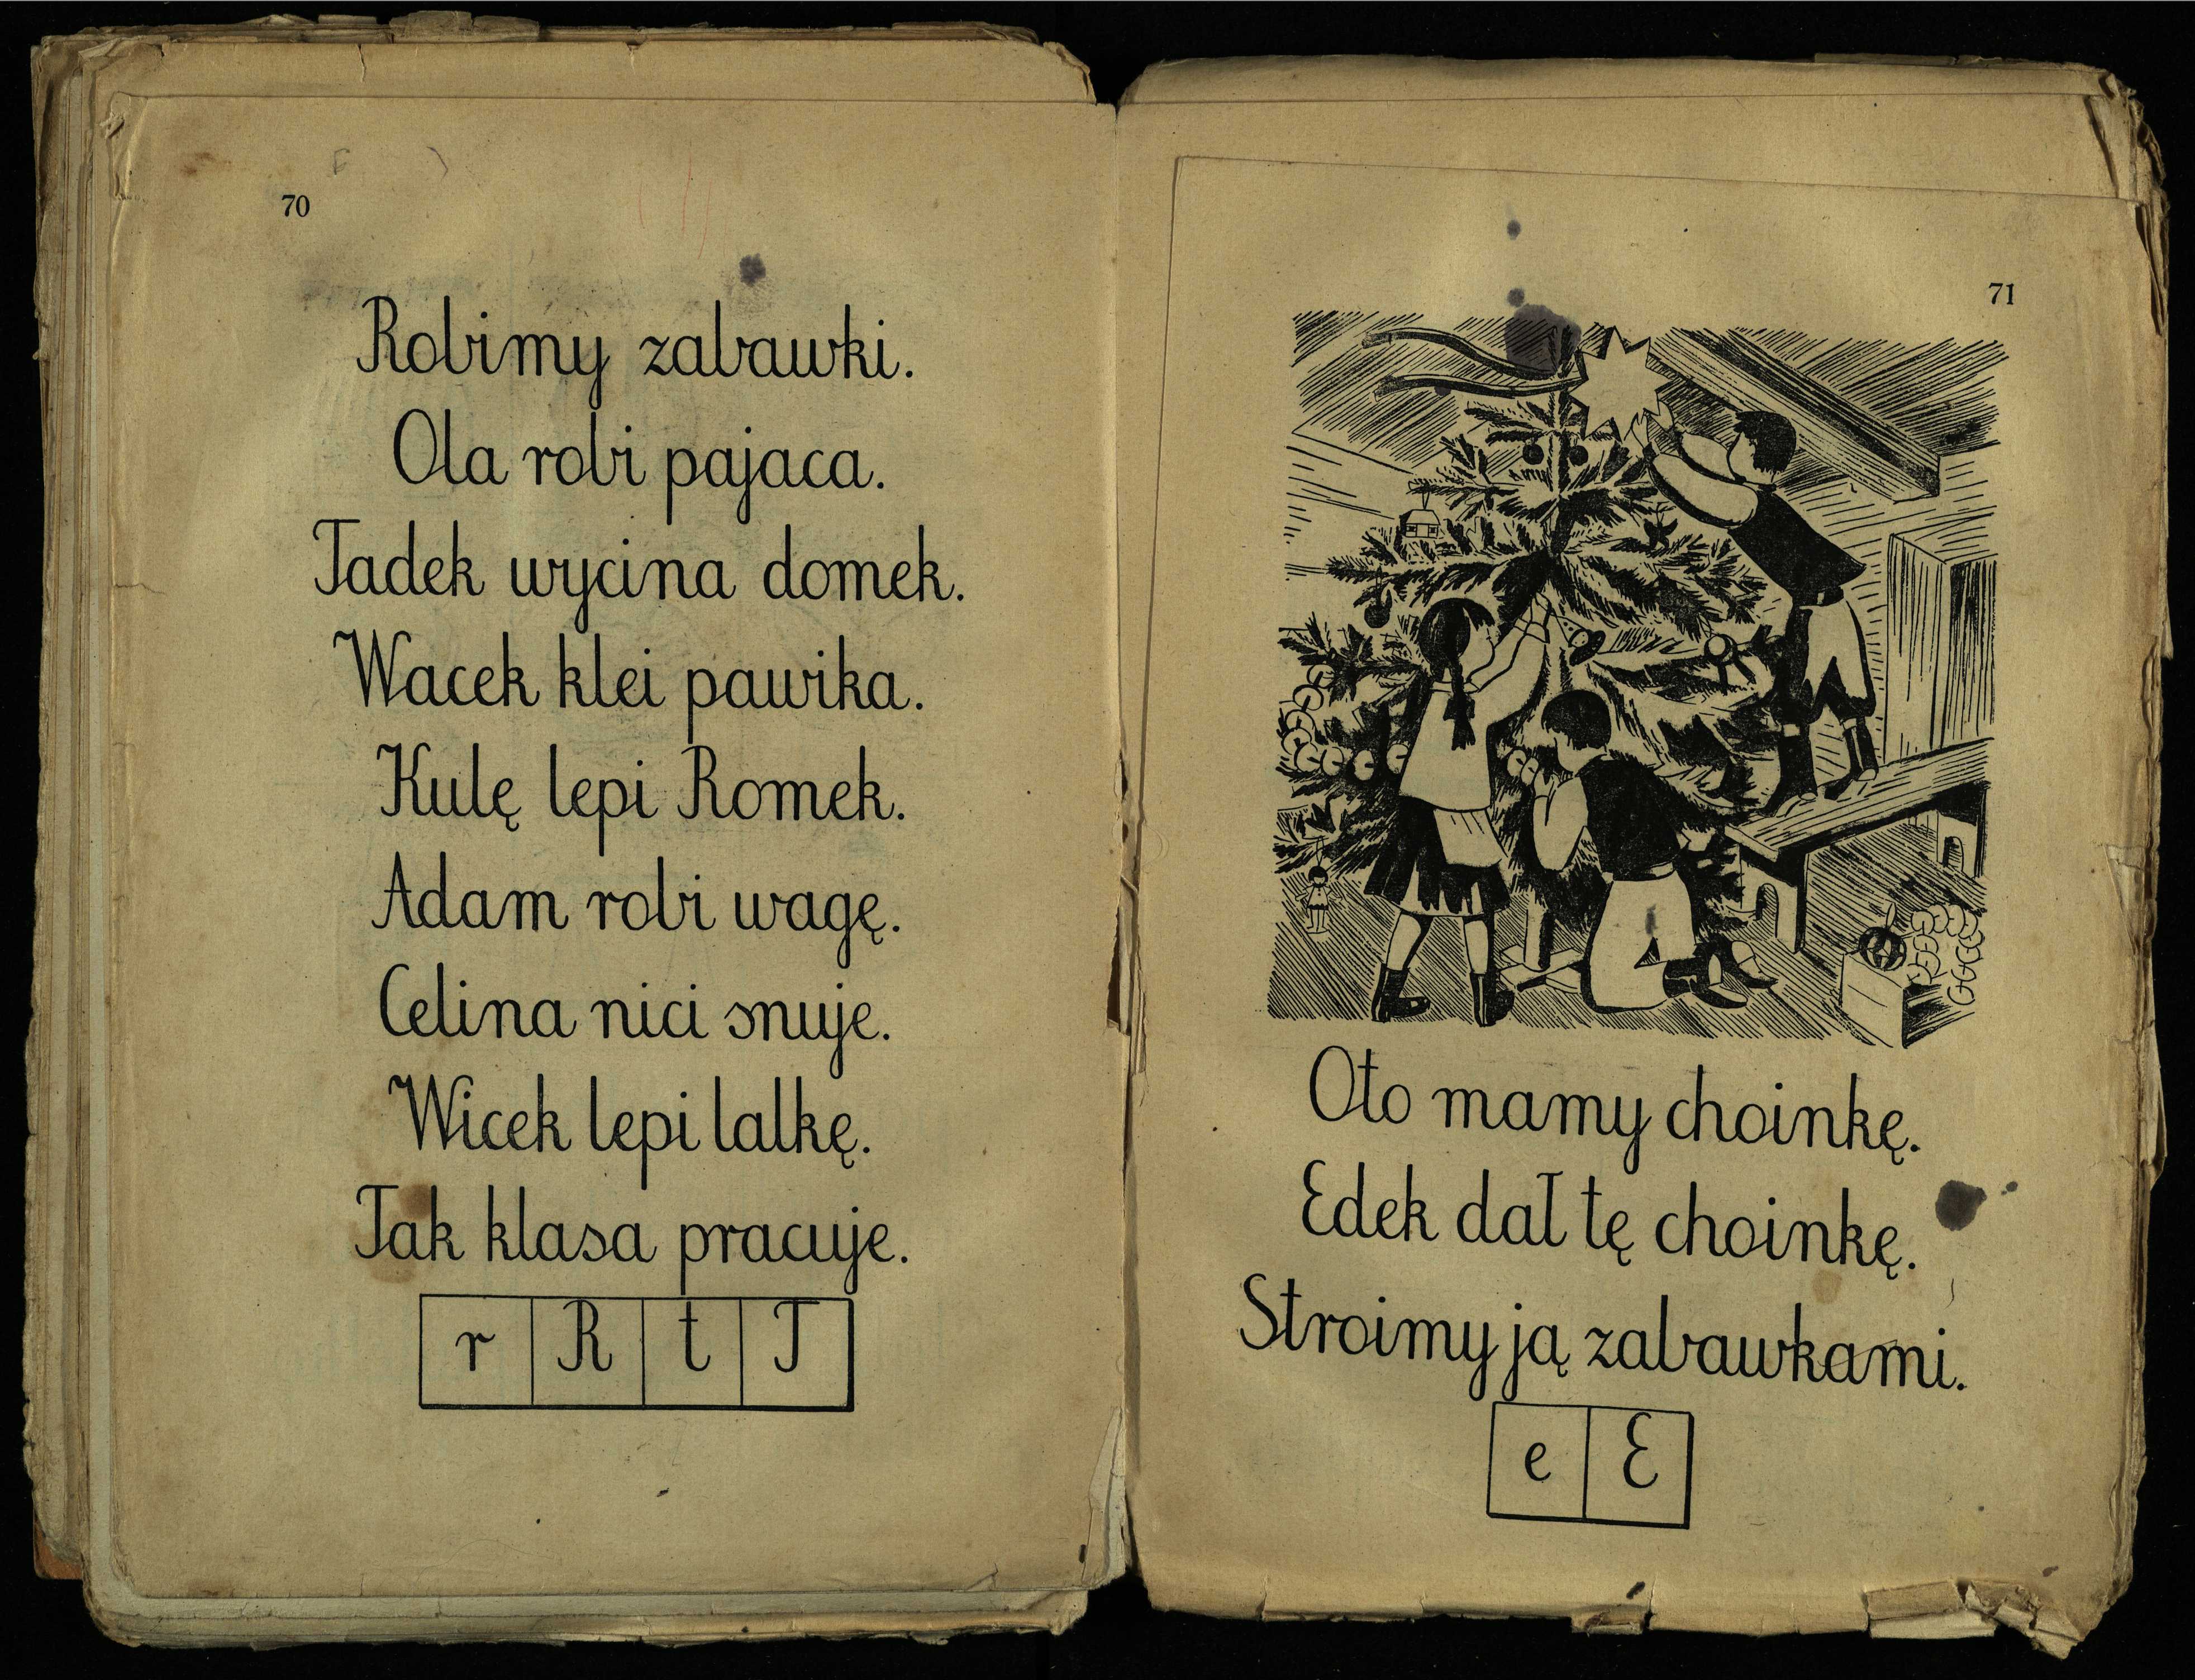 70
Robimy zabawki.
Ola robi pajaca.
Tadek wycina domek.
Wacek klei pawika.
Kulę lepi Romek.
Adam robi wagę.
Celina nici snuje.
Wicek lepi lalkę.
Tak klasa pracuje.
r R t T
71
Oto mamy choinkę.
Edek dał tę choinkę.
Stroimy ją zabawkami.
e E